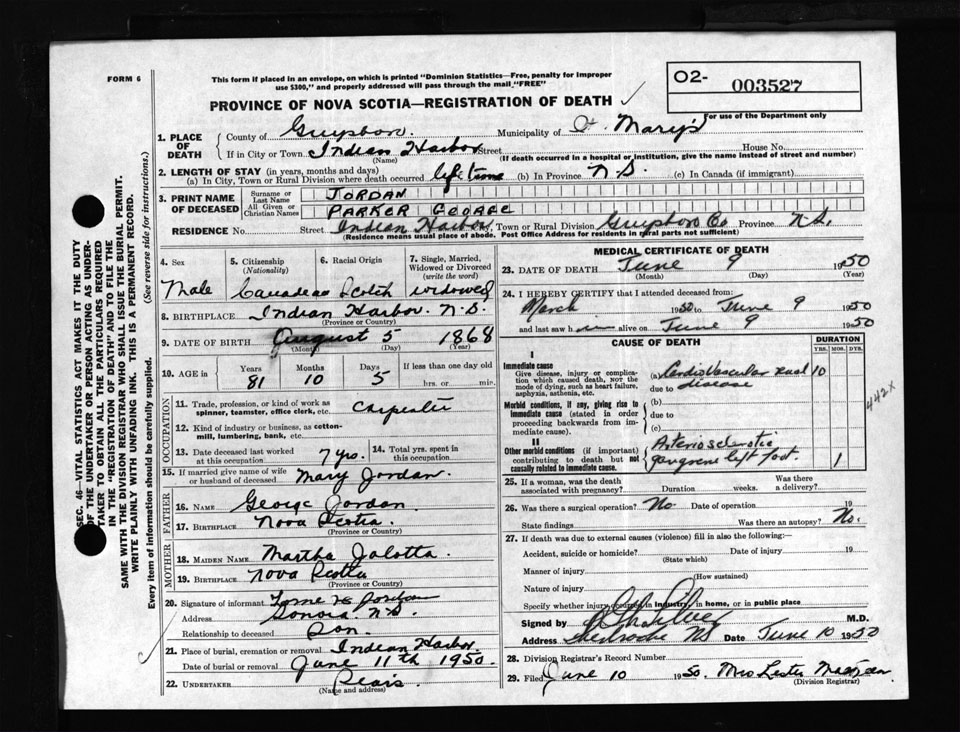 FORM 6
This form if placed in an envelope, on which is printed "Dominion Statistics—Free, penalty for improper
use $300," and properly addressed will pass through the mail "FREE"
O2- 003527
For use of the Department only
PROVINCE OF NOVA SCOTIA—REGISTRATION OF DEATH
1. PLACE OF DEATH
County of Guysboro. Municipality of St. Mary's
If in City or Town Indian Harbor Street House No.
(Name) (If death occurred in a hospital or institution, give the name instead of street and number)
2. LENGTH OF STAY (in years, months and days)
(a) In City, Town or Rural Division where death occurred life time (b) In Province N.S. (c) In Canada (if immigrant)
3. PRINT NAME OF DECEASED
Surname or Last Name JORDAN
All Given or Christian Names PARKER GEORGE
RESIDENCE No. Street Indian Harbor, Town or Rural Division Guysboro Co Province N.S.
(Residence means usual place of abode. Post Office Address for residents in rural parts not sufficient)
4. Sex Male
5. Citizenship (Nationality) Canadian
6. Racial Origin Scotch
7. Single, Married, Widowed or Divorced (write the word) widowed
8. BIRTHPLACE Indian Harbor. N.S.
(Province or Country)
9. DATE OF BIRTH August 5 1868
(Month) (Day) (Year)
10. AGE in Years 81 Months 10 Days 5 If less than one day old
hrs. or min.
OCCUPATION
11. Trade, profession, or kind of work as spinner, teamster, office clerk, etc. Carpenter
12. Kind of industry or business, as cotton-mill, lumbering, bank, etc.
13. Date deceased last worked at this occupation 7 yrs.
14. Total yrs. spent in this occupation
15. If married give name of wife or husband of deceased Mary Jordan
FATHER
16. NAME George Jordan
17. BIRTHPLACE Nova Scotia.
(Province or Country)
MOTHER
18. MAIDEN NAME Martha Jalotta.
19. BIRTHPLACE Nova Scotia
(Province or Country)
20. Signature of informant Jordan
Address Sonora. N.S.
Relationship to deceased Son.
21. Place of burial, cremation or removal Indian Harbor.
Date of burial or removal June 11th 1950.
22. UNDERTAKER
(Name and address)
MEDICAL CERTIFICATE OF DEATH
23. DATE OF DEATH June 9 1950
(Month) (Day) (Year)
24. I HEREBY CERTIFY that I attended deceased from:
March 1950 to June 9 1950
and last saw him alive on June 9 1950
CAUSE OF DEATH
DURATION
YRS. MOS. DYS.
I
Immediate cause
Give disease, injury or complication which caused death, NOT the mode of dying, such as heart failure, asphyxia, asthenia, etc.
(a) Cardio Vascular Renal 10
due to disease
Morbid conditions, if any, giving rise to immediate cause (stated in order proceeding backwards from immediate cause).
(b)
due to
(c)
442X
II
Other morbid conditions (if important) contributing to death but not causally related to immediate cause.
Arteriosclerotic
gangrene left foot. 1
25. If a woman, was the death associated with pregnancy? Duration weeks. Was there a delivery?
26. Was there a surgical operation? No. Date of operation 19
State findings Was there an autopsy? No.
27. If death was due to external causes (violence) fill in also the following:—
Accident, suicide or homicide? Date of injury 19
(State which)
Manner of injury
(How sustained)
Nature of injury
Specify whether injury occurred in industry, in home, or in public place
Signed by M.D.
Address Sherbrooke NS Date June 10 1950
28. Division Registrar's Record Number
29. Filed June 10 1950. Mrs Lester
(Division Registrar)
SEC. 46—VITAL STATISTICS ACT MAKES IT THE DUTY
OF THE UNDERTAKER OR PERSON ACTING AS UNDER-
TAKER TO OBTAIN ALL THE PARTICULARS REQUIRED
IN THE "REGISTRATION OF DEATH" AND TO FILE THE
SAME WITH THE DIVISION REGISTRAR WHO SHALL ISSUE THE BURIAL PERMIT.
WRITE PLAINLY WITH UNFADING INK. THIS IS A PERMANENT RECORD.
Every item of information should be carefully supplied. (See reverse side for instructions.)